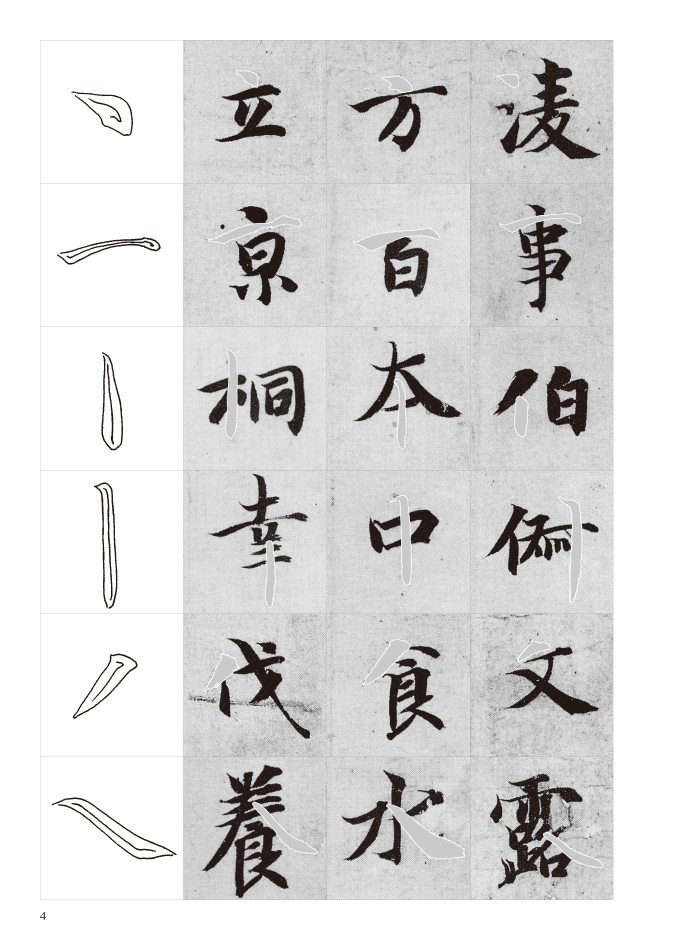 立 方 凌
京 百 事
桐 本 伯
中
伐 食 文
養 水 露
4